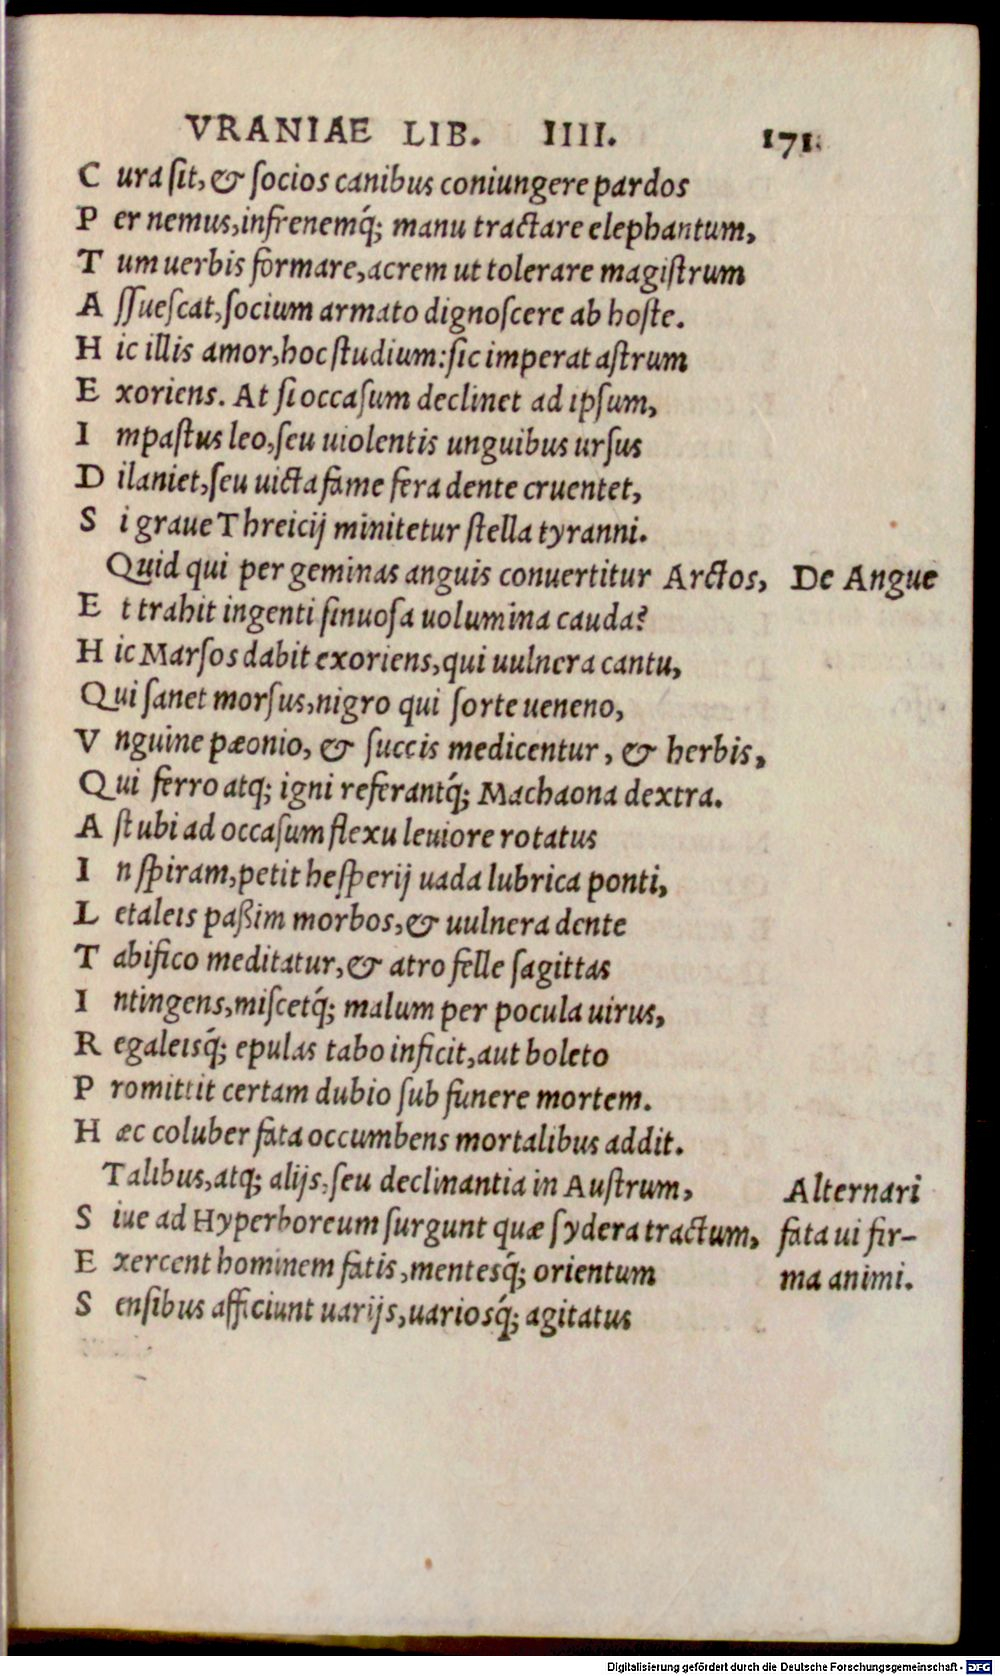 VRANIAE LIB. IIII. 171.
C ura sit, & ſocios canibus coniungere pardos
P er nemus, infrenemq́; manu tractare elephantum,
T um uerbis formare, acrem ut tolerare magiſtrum
A ſſueſcat, ſocium armato dignoſcere ab hoſte.
H ic illis amor, hoc ſtudium: ſic imperat aſtrum
E xoriens. At ſi occaſum declinet ad ipſum,
I mpaſtus leo, ſeu uiolentis unguibus urſus
D ilaniet, ſeu uicta fame fera dente cruentet,
S i graue Threicij minitetur ſtella tyranni.
Quid qui per geminas anguis conuertitur Arctos, De Angue
E t trahit ingenti ſinuoſa uolumina cauda?
H ic Marſos dabit exoriens, qui uulnera cantu,
Qui ſanet morſus, nigro qui ſorte ueneno,
V nguine pæonio, & ſuccis medicentur, & herbis,
Qui ferro atq; igni referantq́; Machaona dextra.
A ſt ubi ad occaſum flexu leuiore rotatus
I n ſpiram, petit heſperij uada lubrica ponti,
L etaleis paßim morbos, & uulnera dente
T abifico meditatur, & atro felle ſagittas
I ntingens, miſcetq́; malum per pocula uirus,
R egaleisq́; epulas tabo inficit, aut boleto
P romittit certam dubio ſub funere mortem.
H æc coluber fata occumbens mortalibus addit.
Talibus, atq; alijs, ſeu declinantia in Auſtrum, Alternari
S iue ad Hyperboreum ſurgunt quæ ſydera tractum, fata ui fir-
E xercent hominem fatis, mentesq́; orientum ma animi.
S enſibus afficiunt uarijs, uariosq́; agitatus
Digitalisierung gefördert durch die Deutsche Forschungsgemeinschaft - DFG